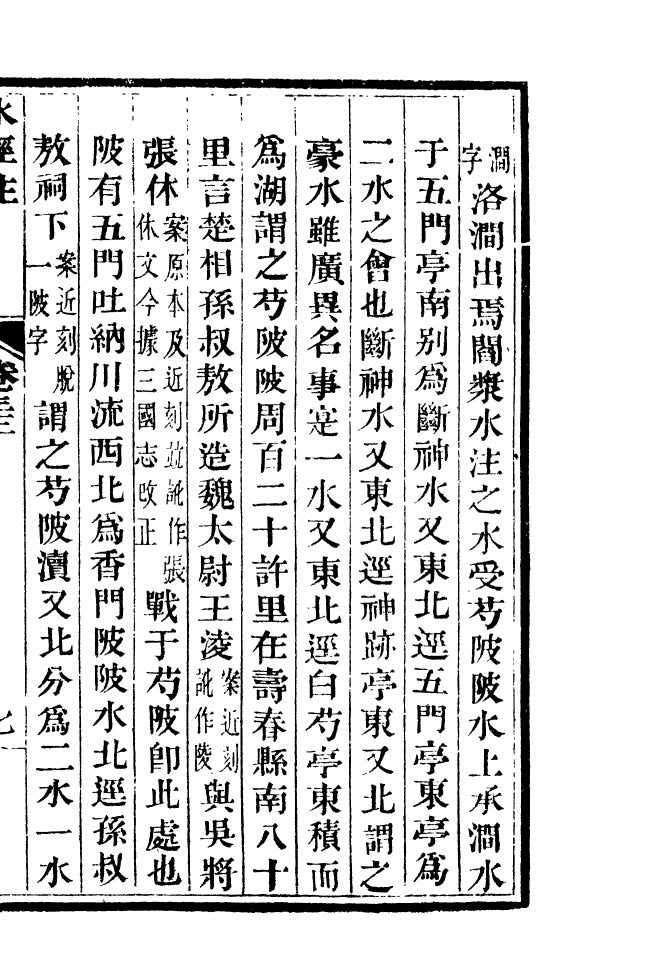 澗字洛澗出焉閻漿水注之水受芍陂陂水上承澗水
于五門亭南别為斷神水又東北逕五門亭東亭為
二水之會也斷神水又東北逕神跡亭東又北謂之
豪水雖廣異名事寔一水又東北逕白芍亭東積而
為湖謂之芍陂陂周百二十許里在壽春縣南八十
里言楚相孫叔敖所造魏太尉王淩案近刻訛作陵與吳將
張休案原本及近刻並訛作張休文今據三國志改正戰于芍陂卽此處也
陂有五門吐納川流西北為香門陂陂水北逕孫叔
敖祠下案近刻脫一陂字謂之芍陂瀆又北分為二水一水
水經注 卷三十二